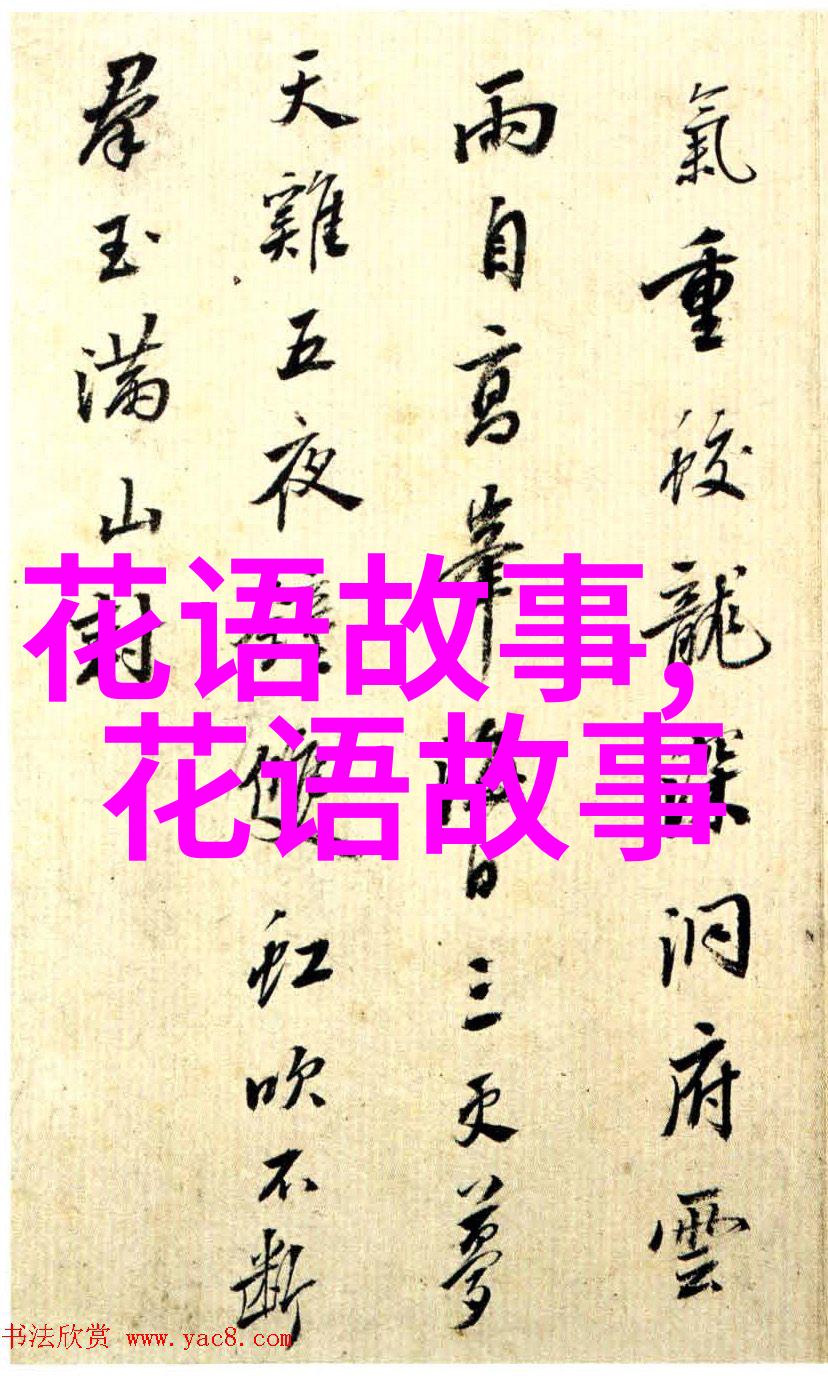 氣重蛟龍深洞府雲
雨自高峯落日三更夢
天雞五夜雙虹吹不斷
羣玉滿山
花语故事,
花语故事
书法欣赏 www.yac8.com